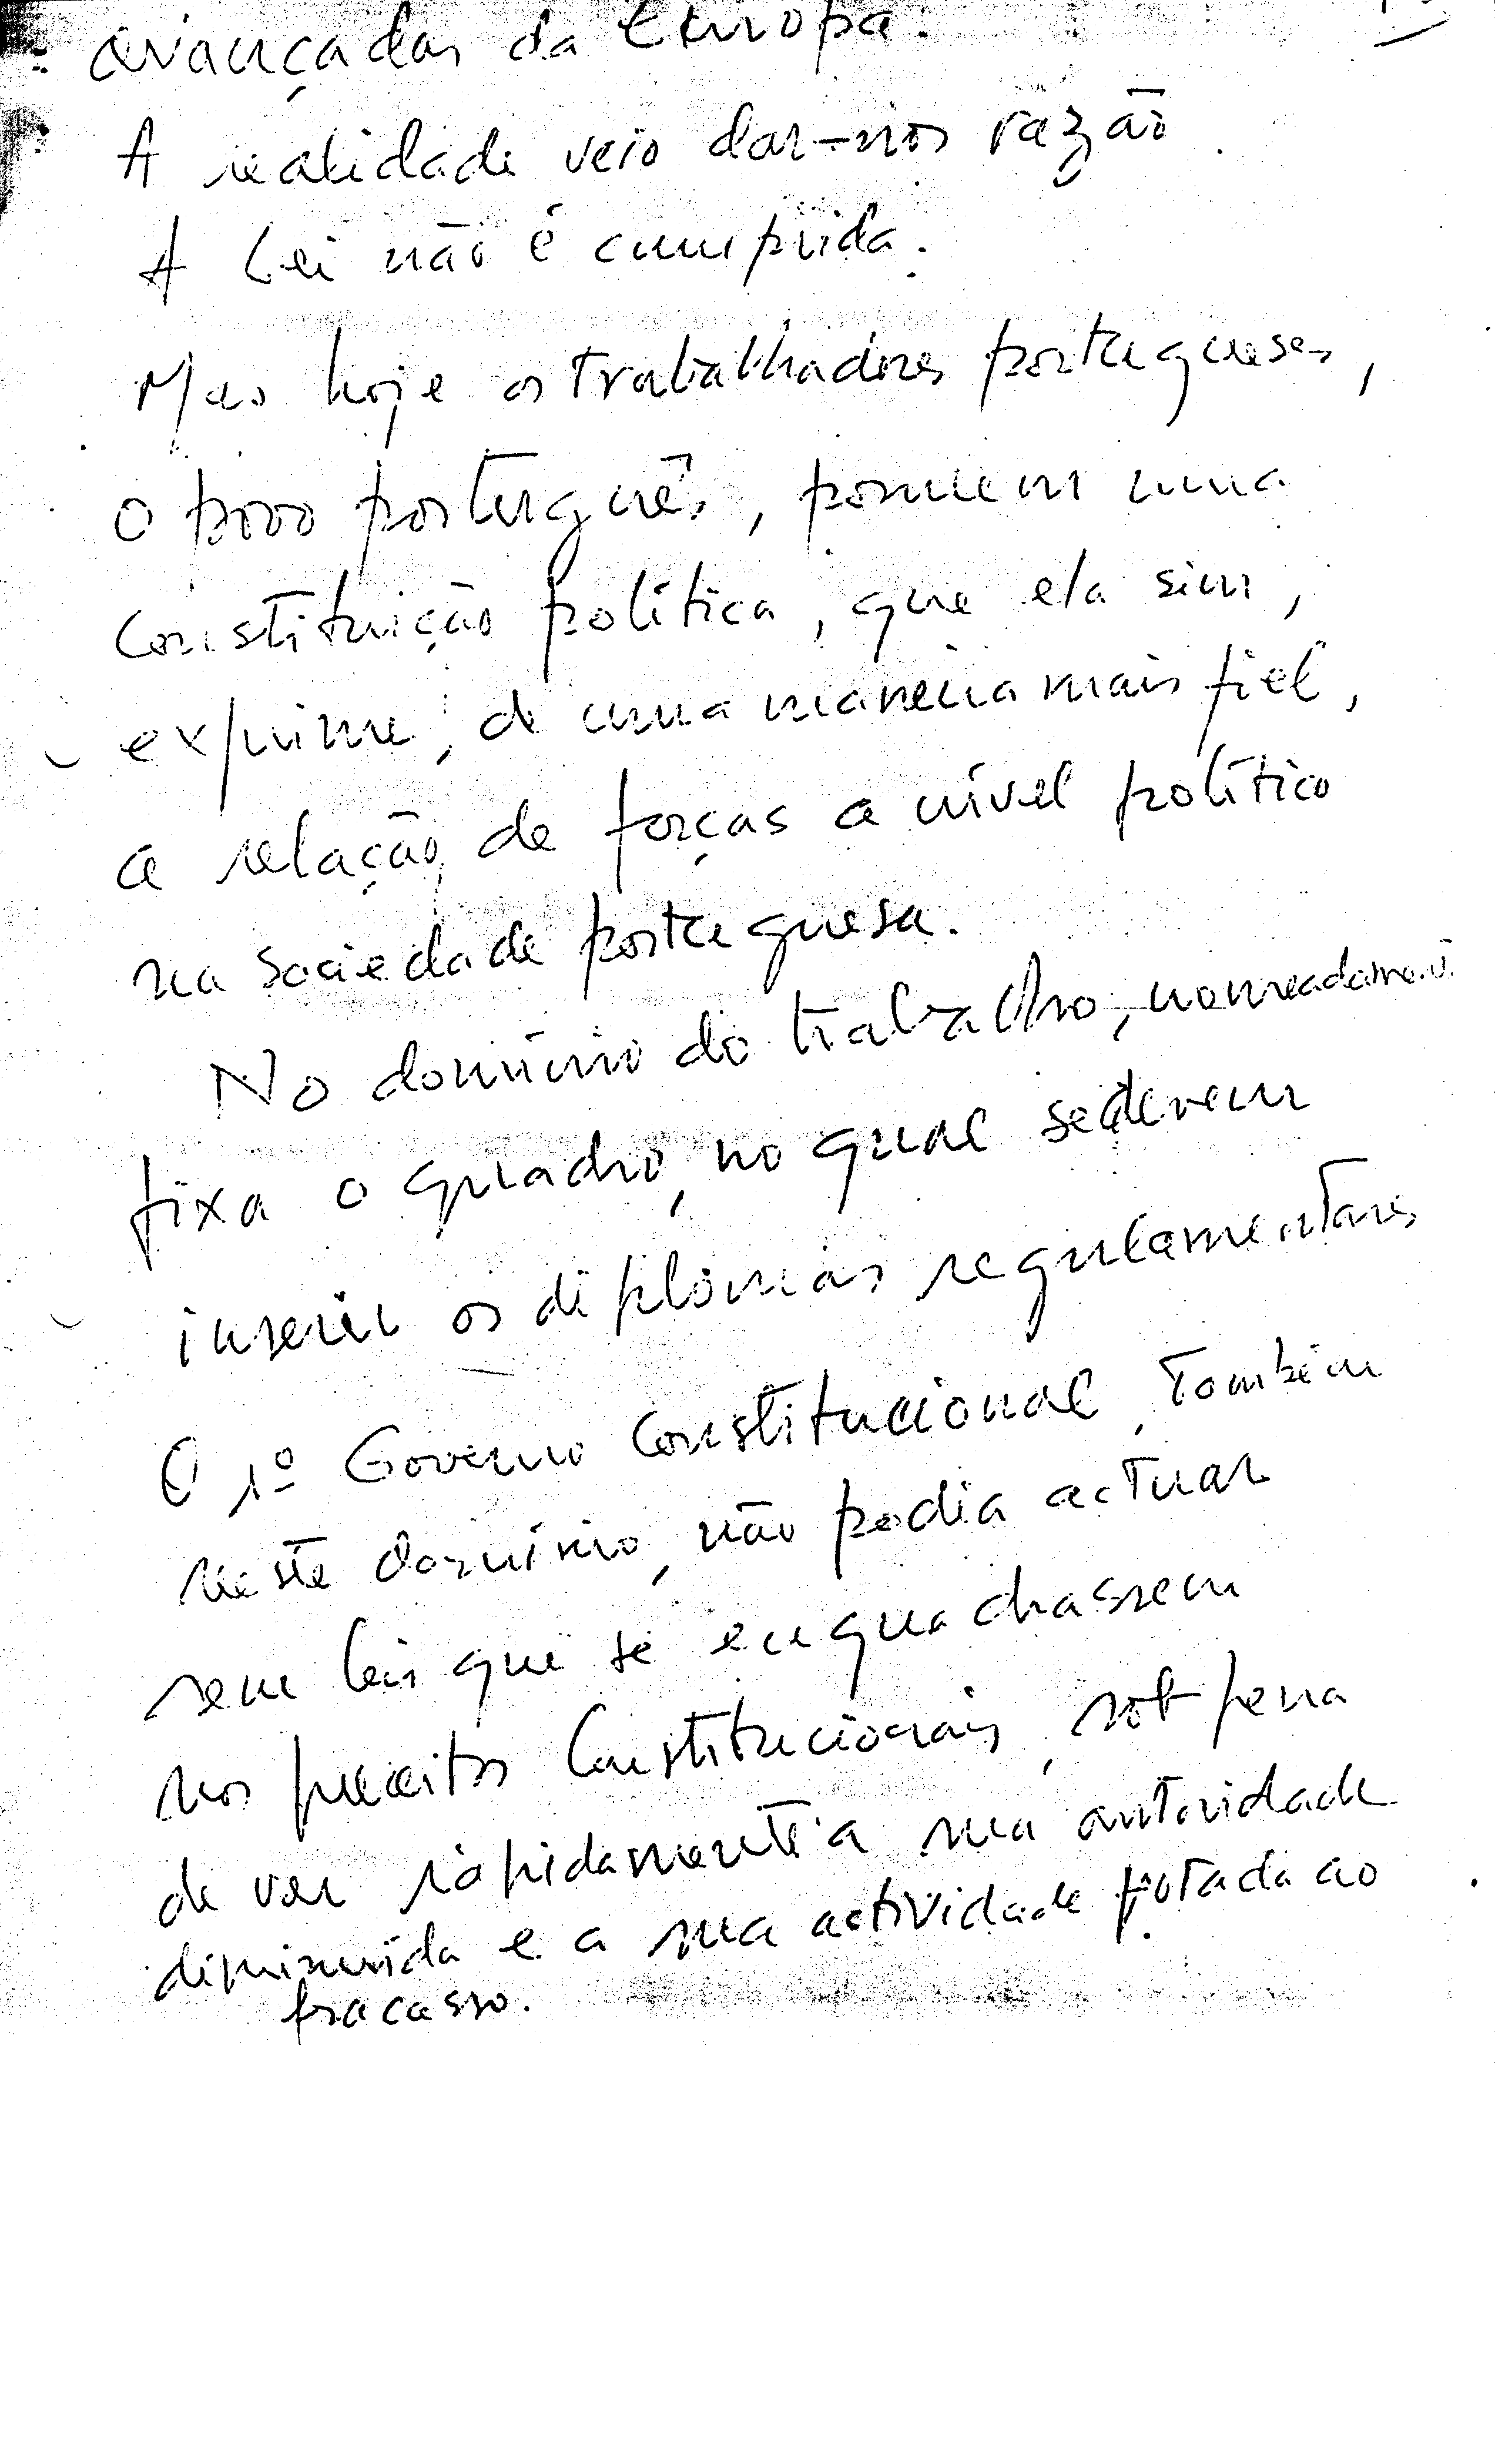 avançadas da Europa.
A realidade veio dar-nos razão.
A Lei não é cumprida.
Mas hoje os trabalhadores portugueses,
o povo português, possuem uma
Constituição política, que ela sim,
exprime, de uma maneira mais fiel,
a relação de forças a nível político
na sociedade portuguesa.
No domínio do trabalho, nomeadamente
fixa o quadro, no qual se devem
inserir os diplomas regulamentares
O 1º Governo Constitucional, também
neste domínio, não podia actuar
sem leis que se enquadrassem
nos preceitos Constitucionais, sob pena
de ver rapidamente a sua autoridade
diminuída e a sua actividade votada ao
fracasso.